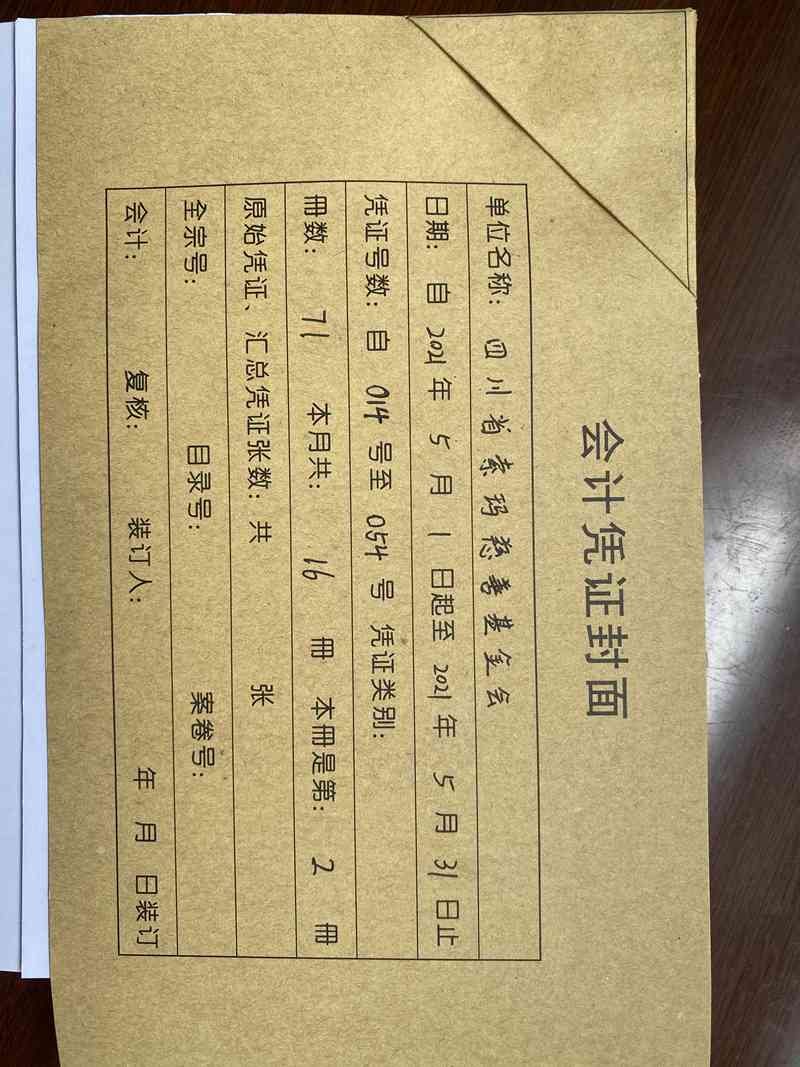 会计凭证封面
单位名称：四川省索玛慈善基金会
日期：自2021年5月1日起至2021年5月31日止
凭证号数：自014号至054号 凭证类别：
冊数：71 本月共：16 冊 本冊是第：2 冊
原始凭证、汇总凭证张数：共 张
全宗号： 目录号： 案卷号：
会计： 复核： 装订人： 年 月 日装订